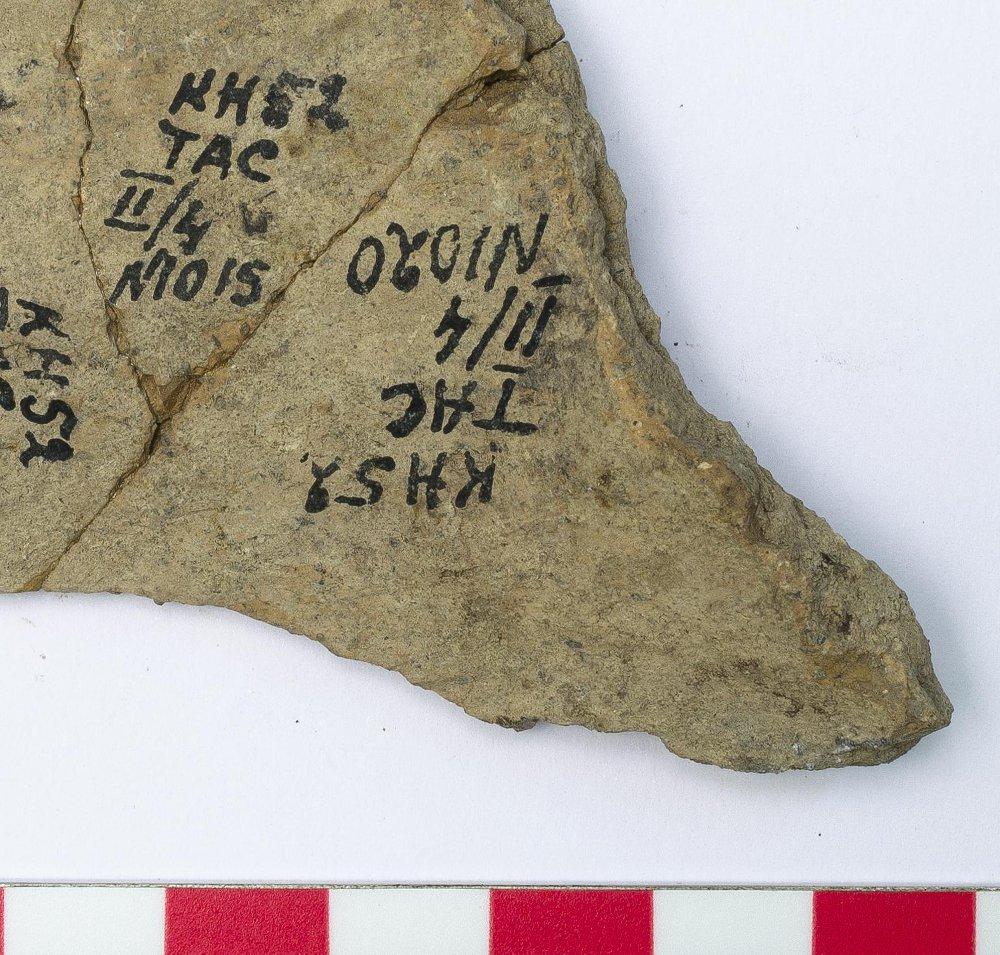 KH52
TAC
II/4
N1015
KH52
TAC
II/4
N1020
KH52